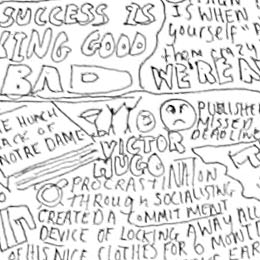 SUCCESS IS
KING GOOD
BAD
IS WHEN
yourself "F
from crazy
WE'RE N
E HUNCH
ACK OF
NOTRE DAME
VICTOR
HUGO
PUBLISHE
MISSED
DEADLINE
PROCRASTINATION
THROUGH SOCIALISING
CREATED A COMMITMENT
DEVICE OF LOCKING AWAY ALL
OF HIS NICE CLOTHES FOR 6 MONT